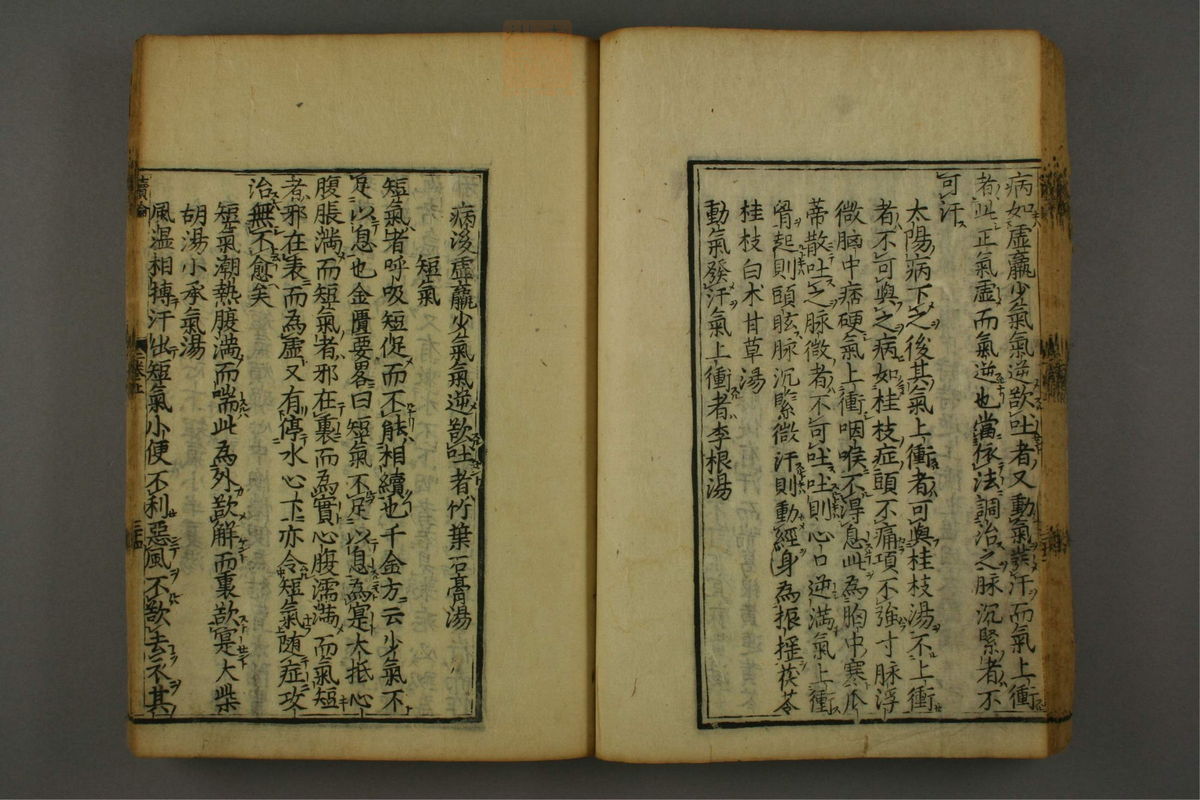 病如虛羸少氣氣逆欲吐者又動氣發汗而氣上衝
者此正氣虛而氣逆也當依法調治之脉沉緊者不
可汗
太陽病下之後其氣上衝者可與桂枝湯不上衝
者不可與之病如桂枝症頭不痛項不強寸脉浮
微胸中痞硬氣上衝咽喉不得息此為胸中寒瓜
蒂散吐之脉微者不可吐吐則心口逆滿氣上衝
胷起則頭眩脉沉緊微汗則動經身為振摇茯苓
桂枝白术甘草湯
動氣發汗氣上衝者李根湯
病後虛羸少氣氣逆欲吐者竹葉石膏湯
短氣
短氣者呼吸短促而不能相續也千金方云少氣不
足以息也金匱要畧曰短氣不足以息為寔大抵心
腹脹滿而短氣者邪在裏而為實心腹濡滿而氣短
者邪在表而為虛又有停水心下亦令短氣随症攻
治無不愈矣
短氣潮熱腹滿而喘此為外欲解而裏欲寔大柴
胡湯小承氣湯
風温相摶汗出短氣小便不利惡風不欲去衣其